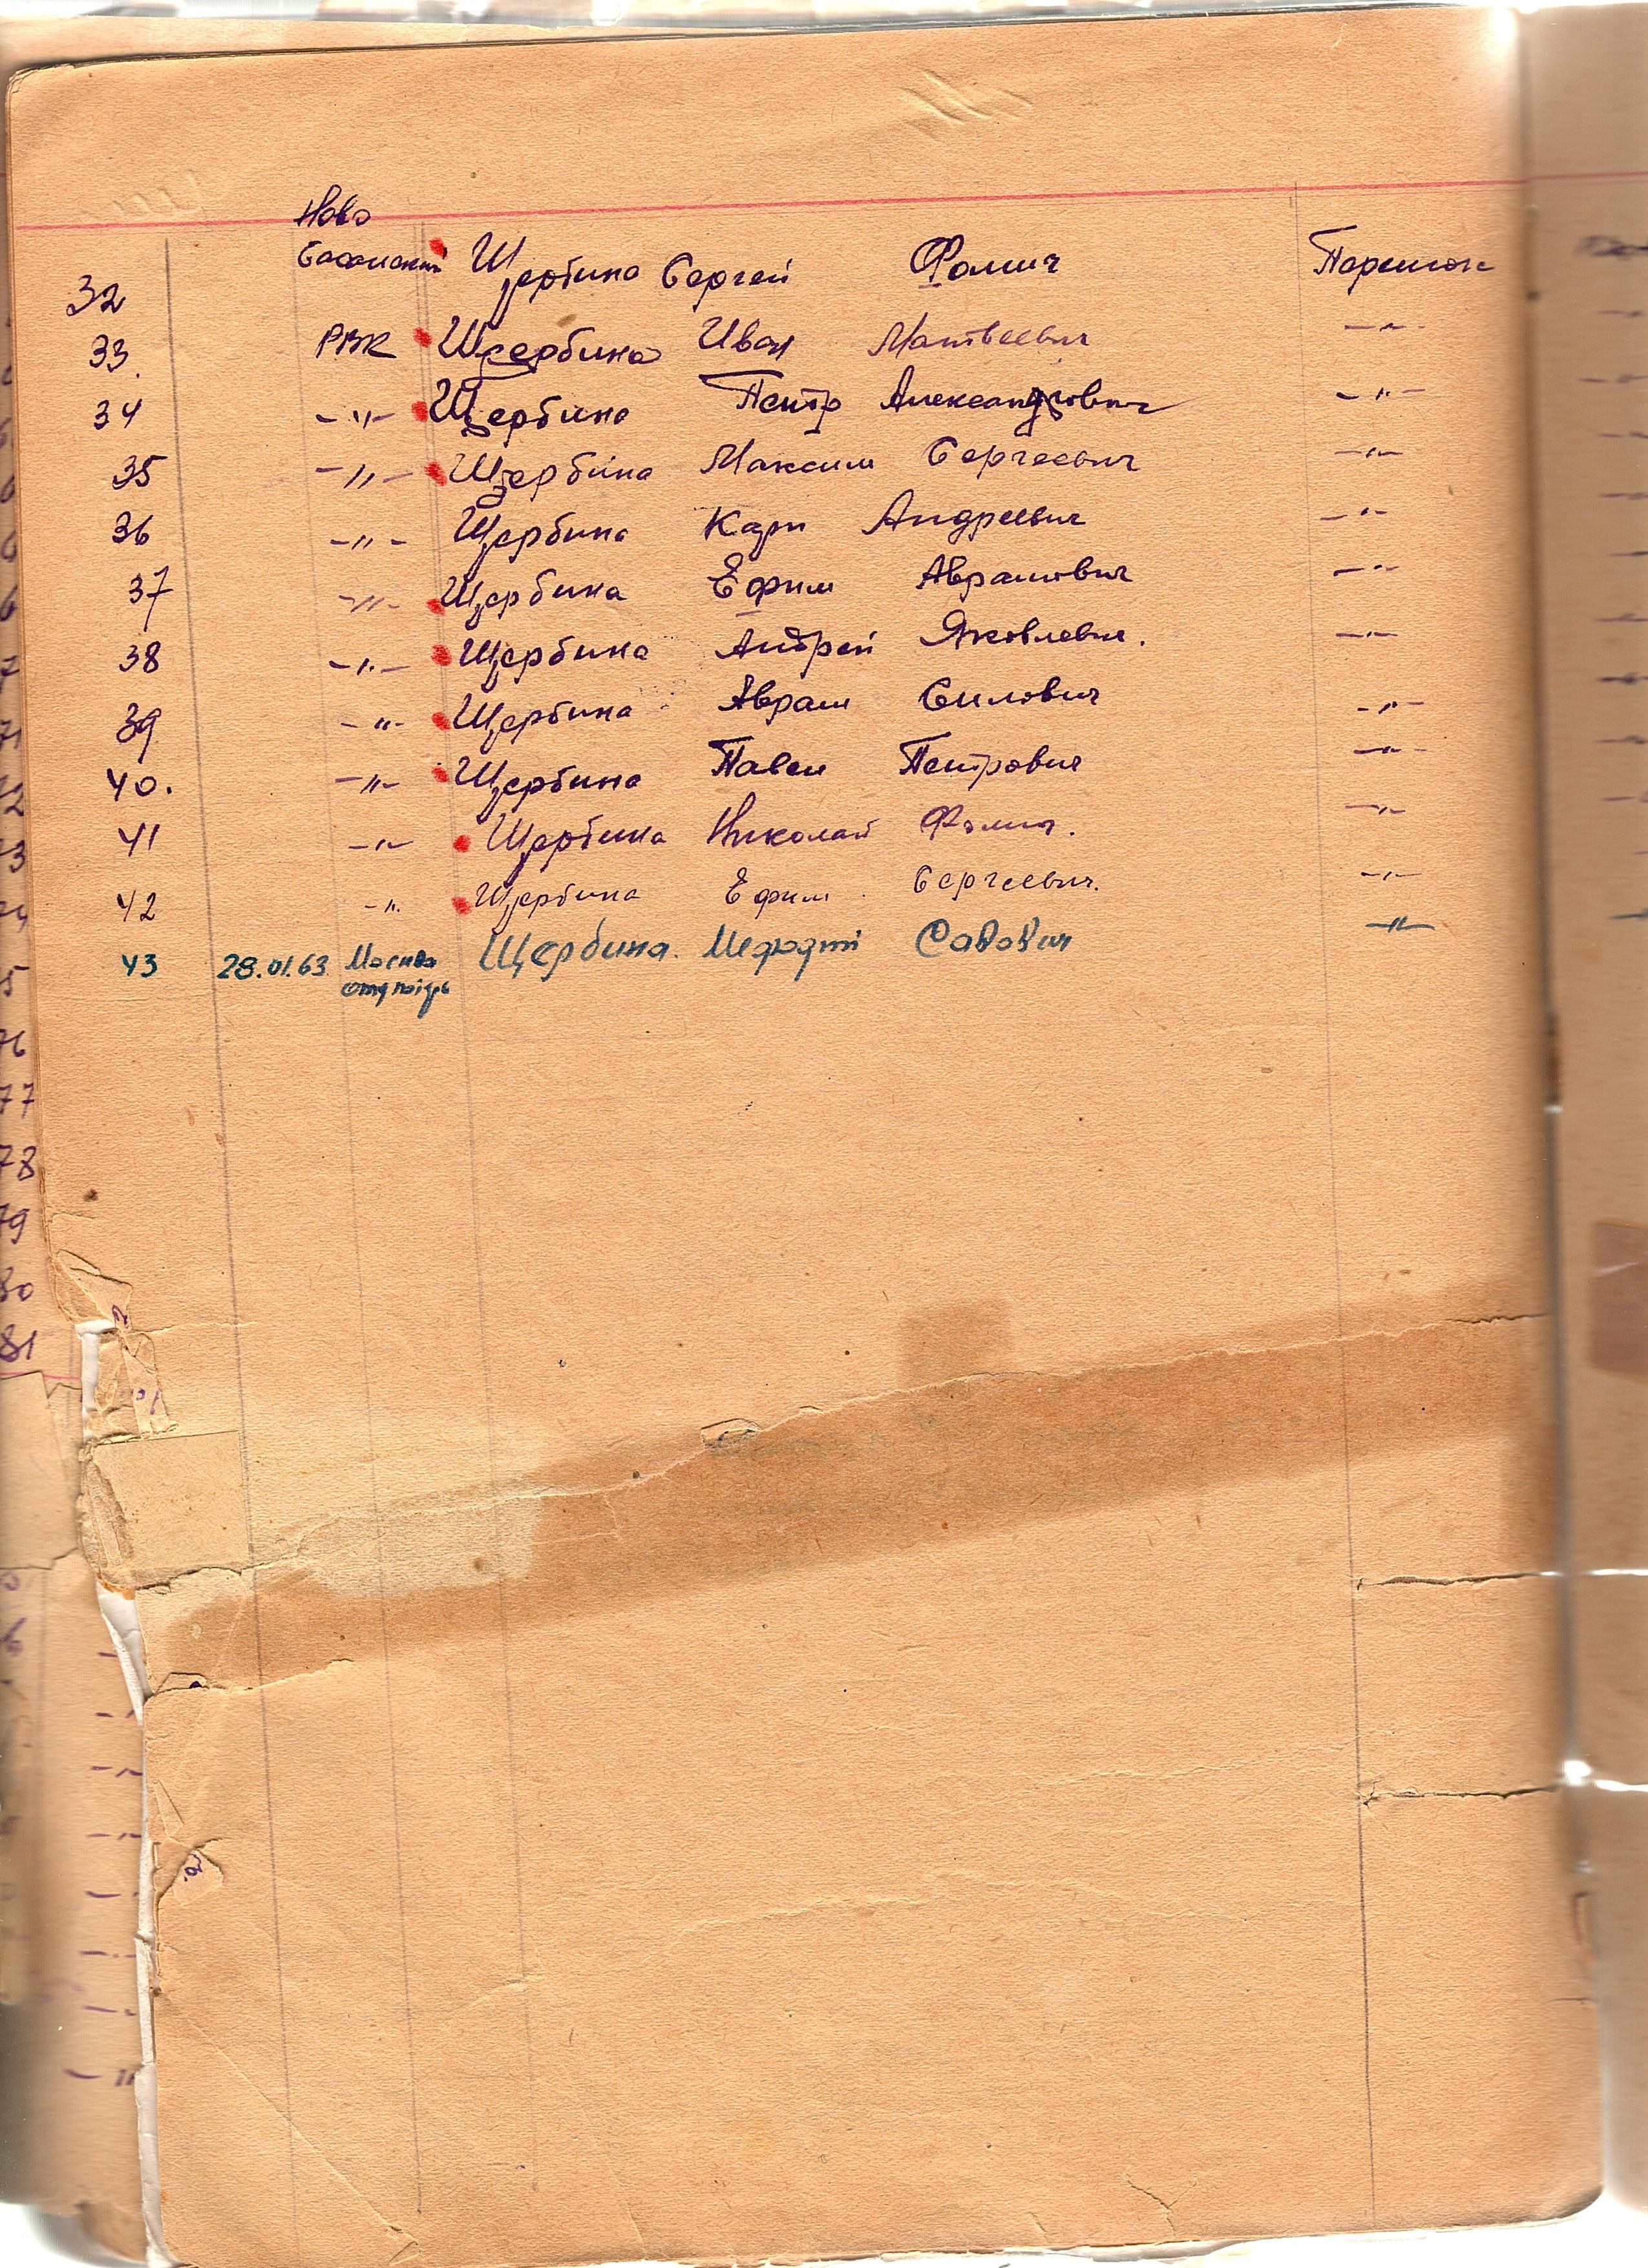 Ново
32 Басанский Щербина Сергей Фомич
33. РВК Щербина Иван Матвеевич -"-
34 -"- Щербина Петр Александрович -"-
35 -"- Щербина Максим Сергеевич -"-
36 -"- Щербина Карп Андреевич -"-
37 -"- Щербина Ефим Аврамович -"-
38 -"- Щербина Андрей Яковлевич. -"-
39 -"- Щербина Аврам Силович -"-
40. -"- Щербина Павел Петрович -"-
41 -"- Щербина Николай Фомич. -"-
42 -"- Щербина Ефим Сергеевич. -"-
43 28.01.63 Москва Щербина. -"-
77
78
79
80
81